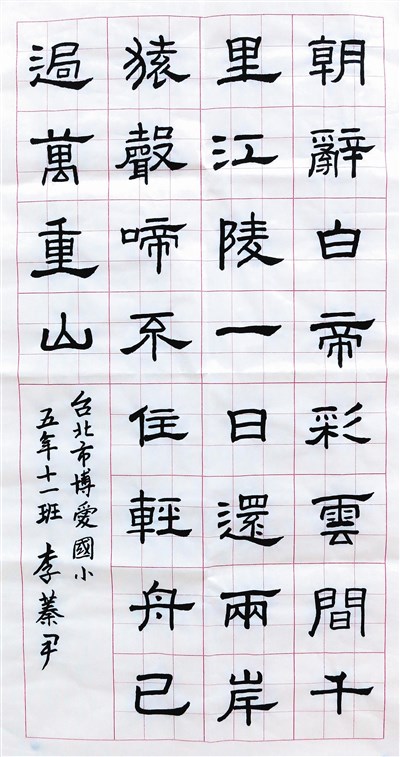 朝辭白帝彩雲間千
里江陵一日還兩岸
猿聲啼不住輕舟已
過萬重山
台北市博愛國小
五年十一班 李蓁尹